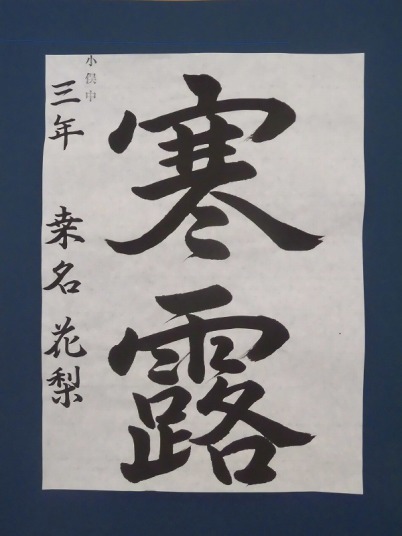 寒露
小俣中
三年 桒名 花梨